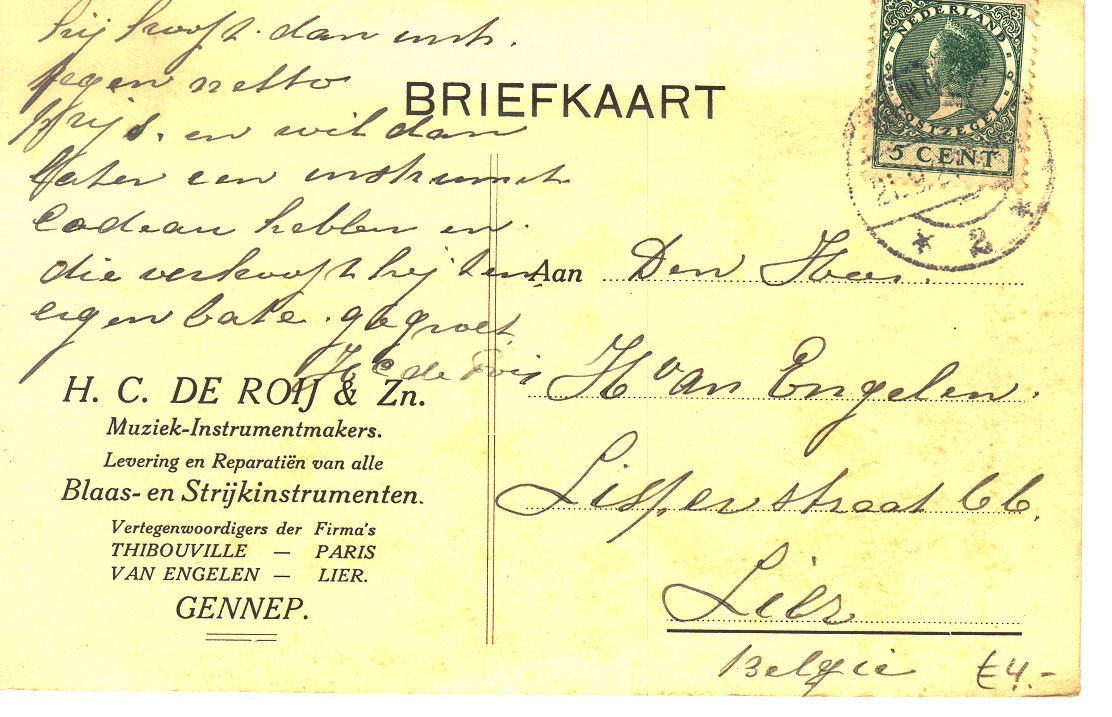 hij koopt dan instr.
tegen netto
prijs. en wil dan
later een instrument
cadeau hebben en
die verkoopt hij ten
eigen bate. gegroet
H C de
BRIEFKAART
NEDERLAND
POSTZEGEL
5 CENT
2
Aan Den Heer.
H van Engelen.
Lisperstraat 66.
Lier
Belgie
£4.-
H. C. DE ROIJ & Zn.
Muziek-Instrumentmakers.
Levering en Reparatiën van alle
Blaas- en Strijkinstrumenten.
Vertegenwoordigers der Firma's
THIBOUVILLE — PARIS
VAN ENGELEN — LIER.
GENNEP.